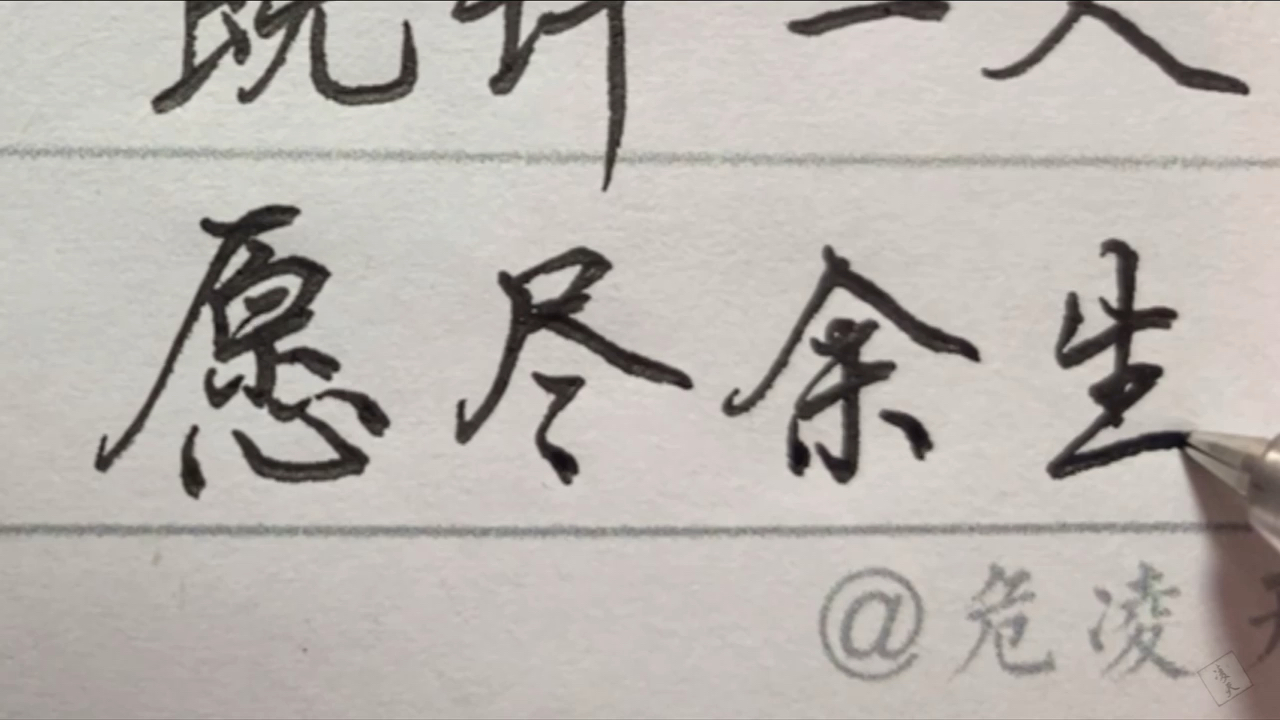 既许一人
愿尽余生
@危凌